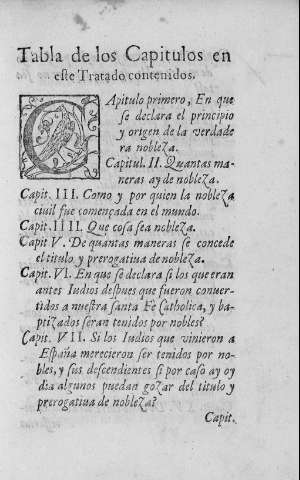 Tabla de los Capitulos en
este Tratado contenidos.
CApitulo primero, En que
se declara el principio
y origen de la verdade
ra nobleza.
Capitul. II. Quantas ma-
neras ay de nobleza.
Capit. III. Como y por quien la nobleza
ciuil fue començada en el mundo.
Capit. IIII. Que cosa sea nobleza.
Capit V. De quantas maneras se concede
el titulo y prerogatiua de nobleza.
Capit. VI. En que se declara si los que eran
antes Iudios despues que fueron conuer-
tidos a nuestra santa Fe Catholica, y ba-
ptizados seran tenidos por nobles?
Capit. VII. Si los Iudios que vinieron a
España merecieron ser tenidos por no-
bles, y sus descendientes si por caso ay oy
dia algunos puedan gozar del titulo y
prerogatiua de nobleza?
Capit.